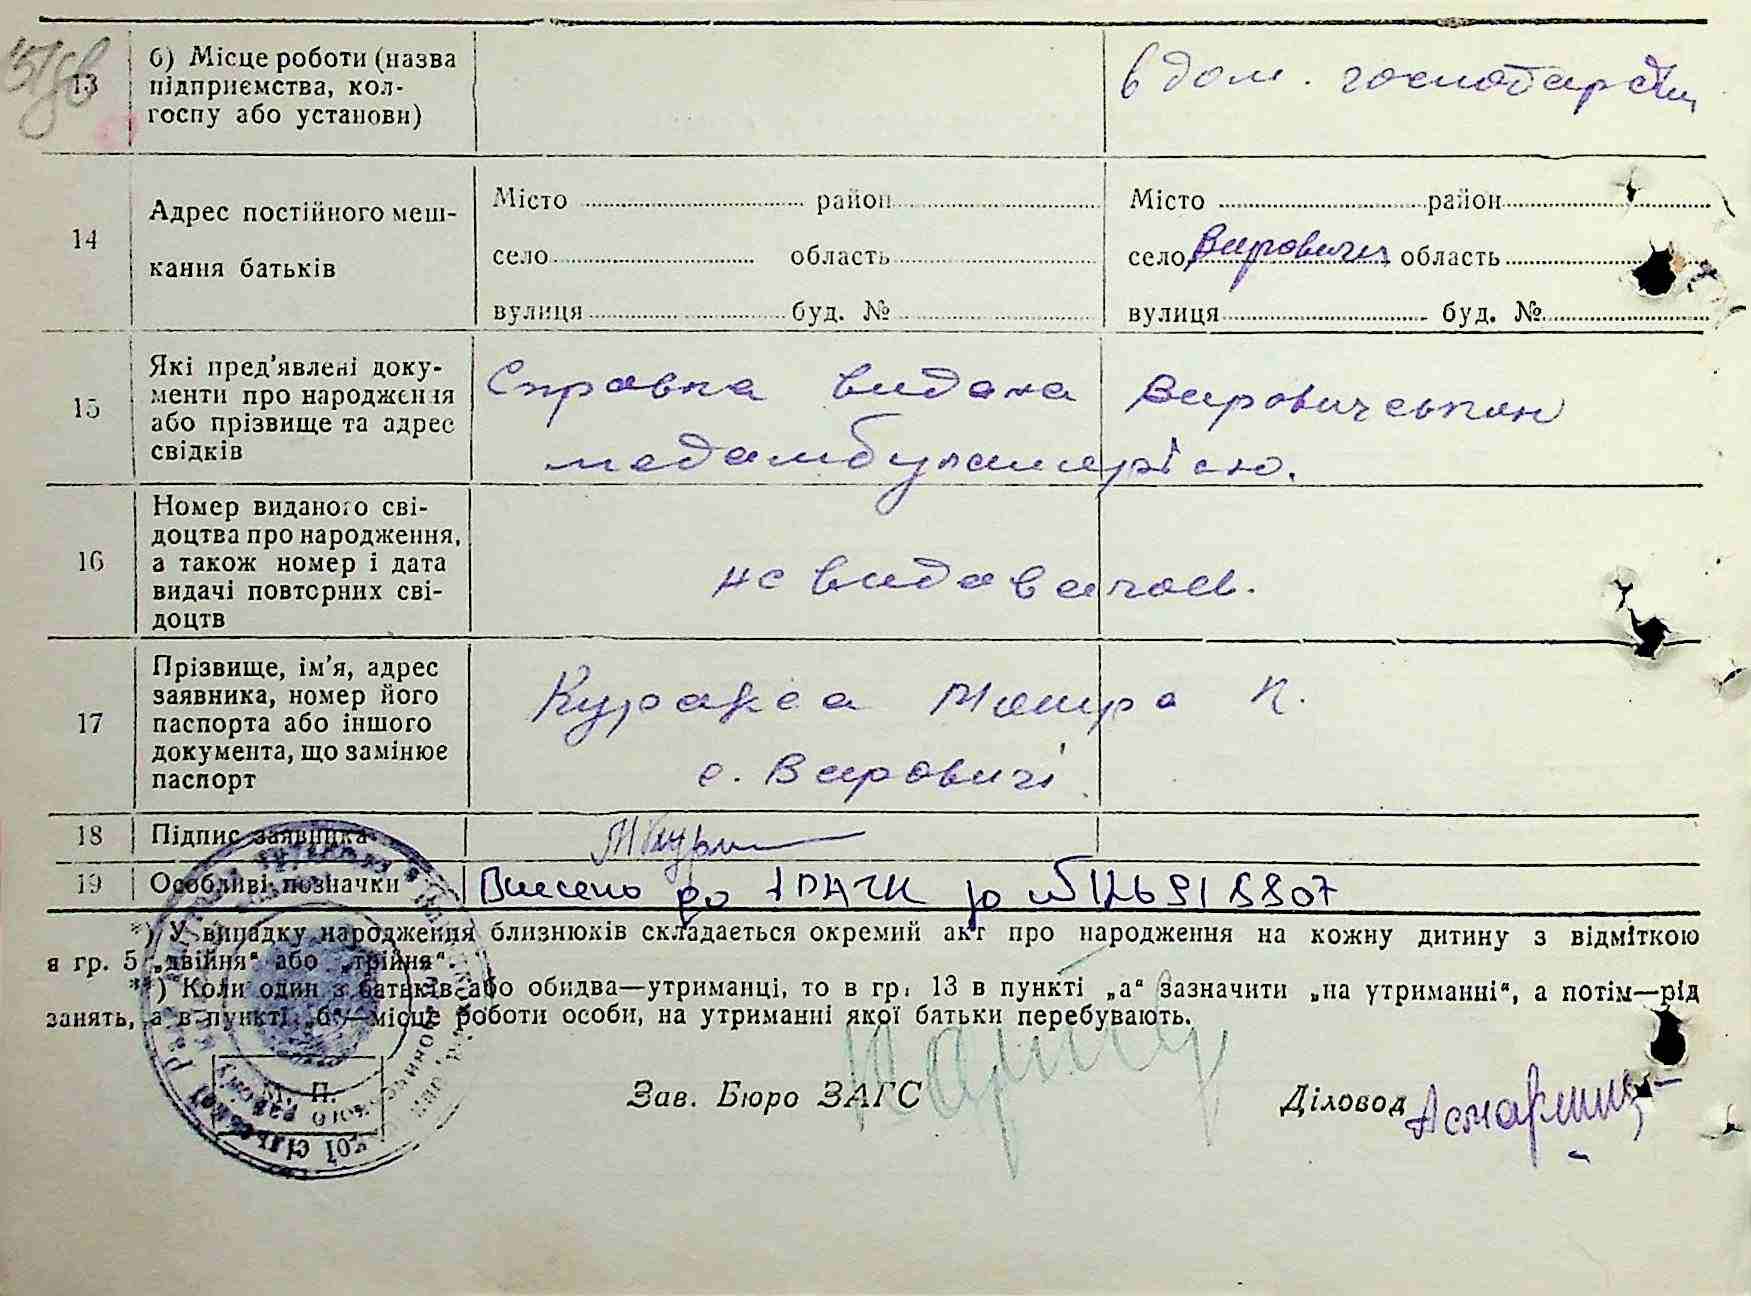 13 б) Місце роботи (назва
підприємства, кол-
госпу або установи)
в дом. господарстві
14 Адрес постійного меш-
кання батьків
Місто район Місто район
село область село Вировичи область
вулиця буд. № вулиця буд. №
15 Які пред'явлені доку-
менти про народження
або прізвище та адрес
свідків
Справка видана Вировичською
медамбулаторією.
16 Номер виданого сві-
доцтва про народження,
а також номер і дата
видачі повторних сві-
доцтв
не видавалось.
17 Прізвище, ім'я, адрес
заявника, номер його
паспорта або іншого
документа, що замінює
паспорт
Мотря К.
с. Вировичі
18 Підпис заявника
19 Особливі позначки Внесено до ДРАЦС за №
*) У випадку народження близнюків складається окремий акт про народження на кожну дитину з відміткою
в гр. 5 „двійня“ або „трійня“.
**) Коли один з батьків або обидва—утриманці, то в гр. 13 в пункті „а“ зазначити „на утриманні“, а потім—рід
занять, а в пункті „б“—місце роботи особи, на утриманні якої батьки перебувають.
М. П.
Зав. Бюро ЗАГС Діловод